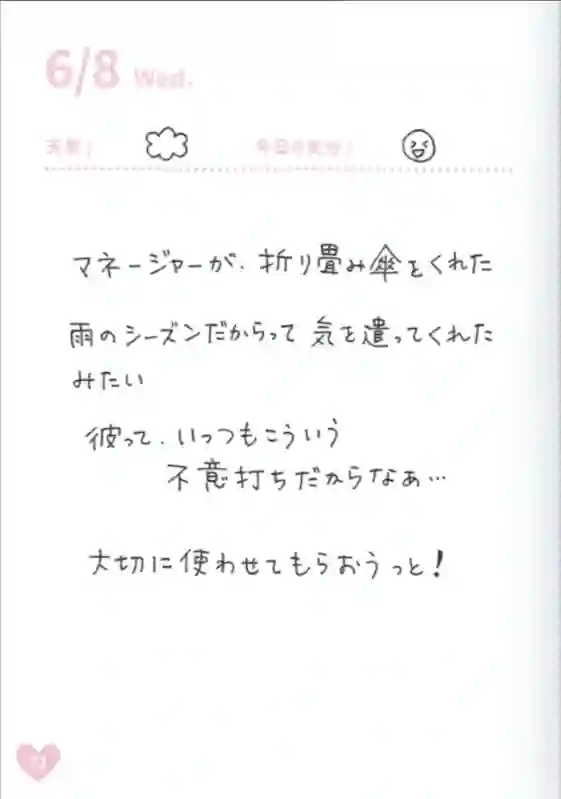 6/8 Wed.
天気/ 今日の気分/
マネージャーが、折り畳み傘をくれた
雨のシーズンだからって 気を遣ってくれた
みたい
彼って、いっつもこういう
不意打ちだからなぁ…
大切に使わせてもらおうっと!